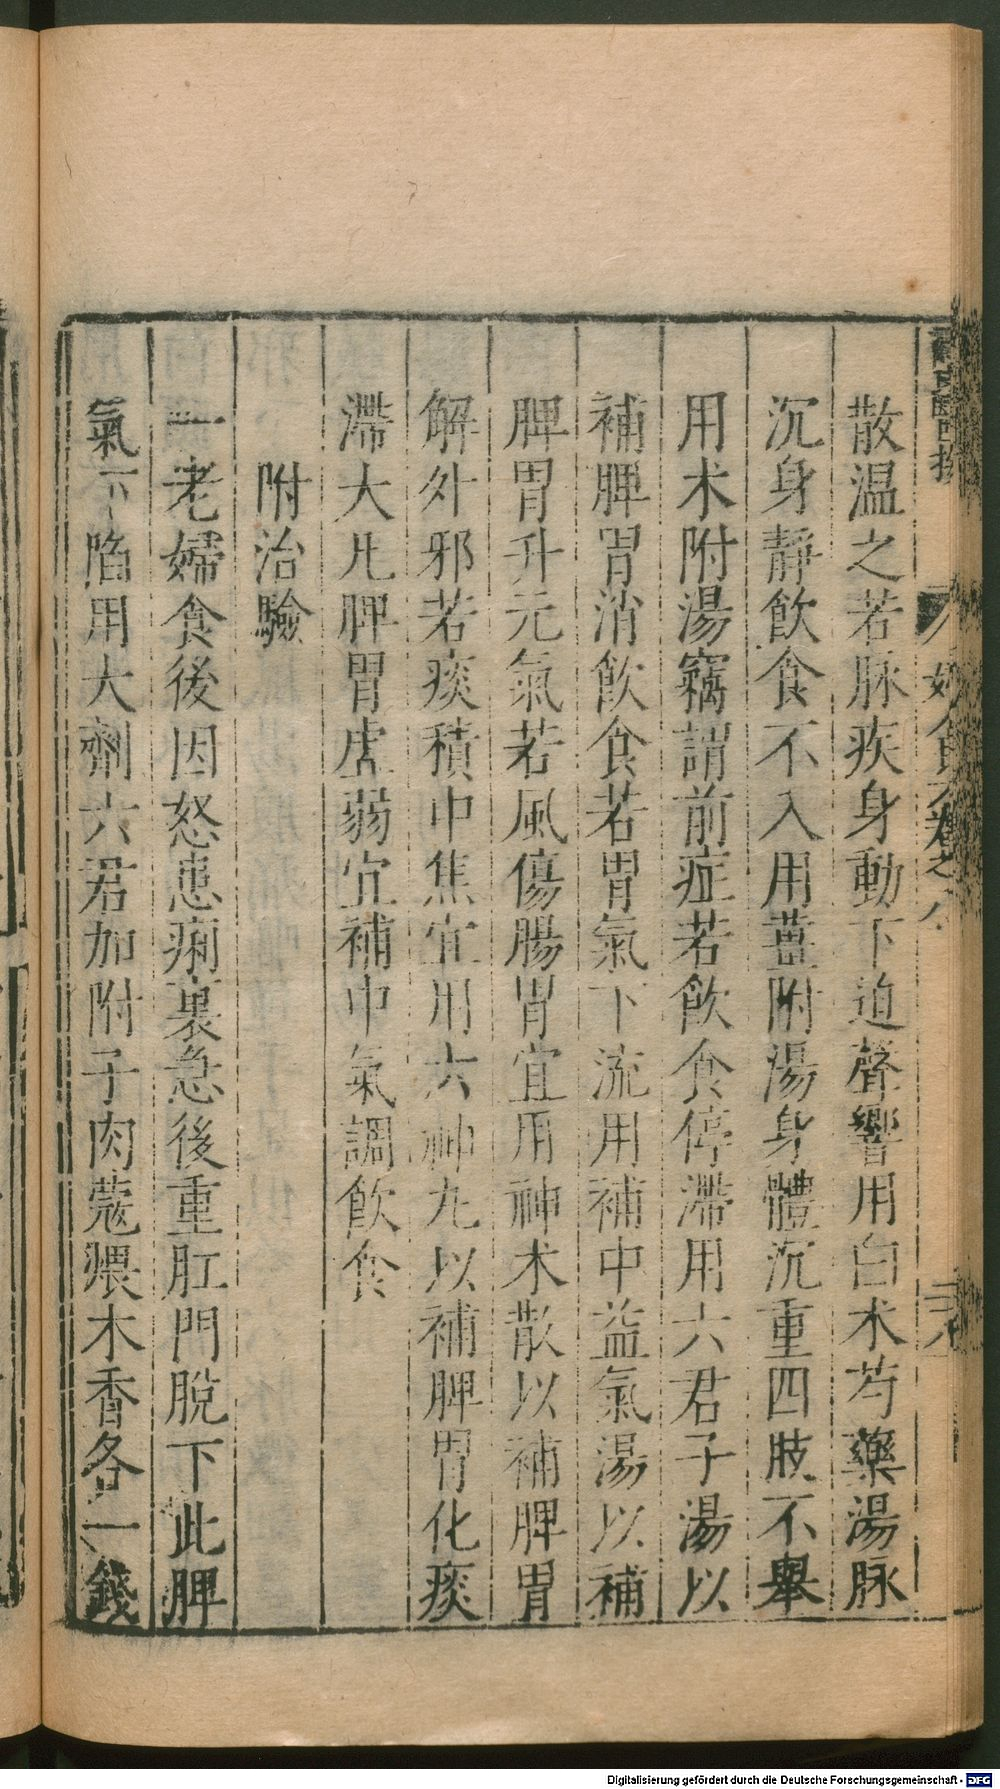 散温之若脉疾身動下迫聲響用白术芍藥湯脉
沉身靜飲食不入用薑附湯身體沉重四肢不舉
用术附湯竊謂前症若飲食停滯用六君子湯以
補脾胃消飲食若胃氣下流用補中益氣湯以補
脾胃升元氣若風傷腸胃宜用神术散以補脾胃
解外邪若痰積中焦宜用六神丸以補脾胃化痰
滯大凡脾胃虛弱宜補中氣調飲食
附治驗
一老婦食後因怒患痢裏急後重肛門脫下此脾
氣下陷用大劑六君加附子肉蔻煨木香各一錢
Digitalisierung gefördert durch die Deutsche Forschungsgemeinschaft - DFG